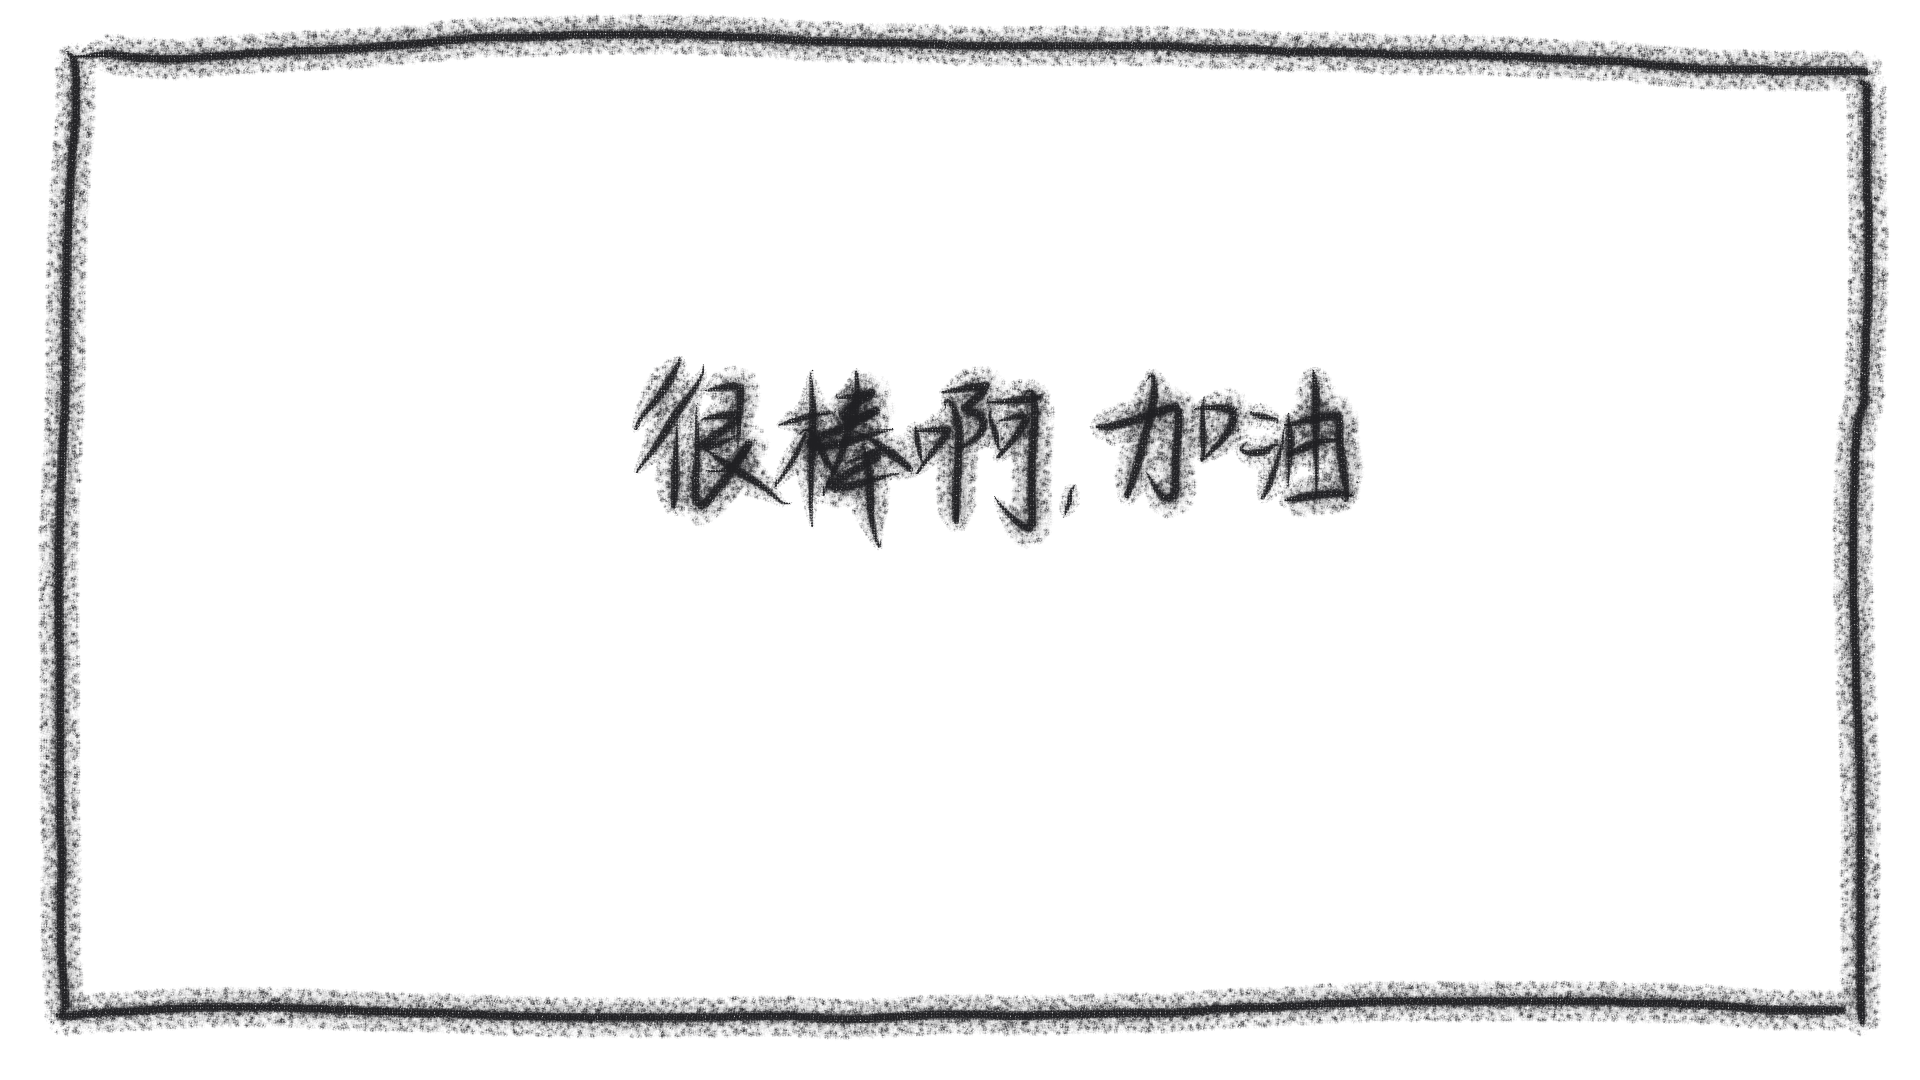 很棒啊,加油